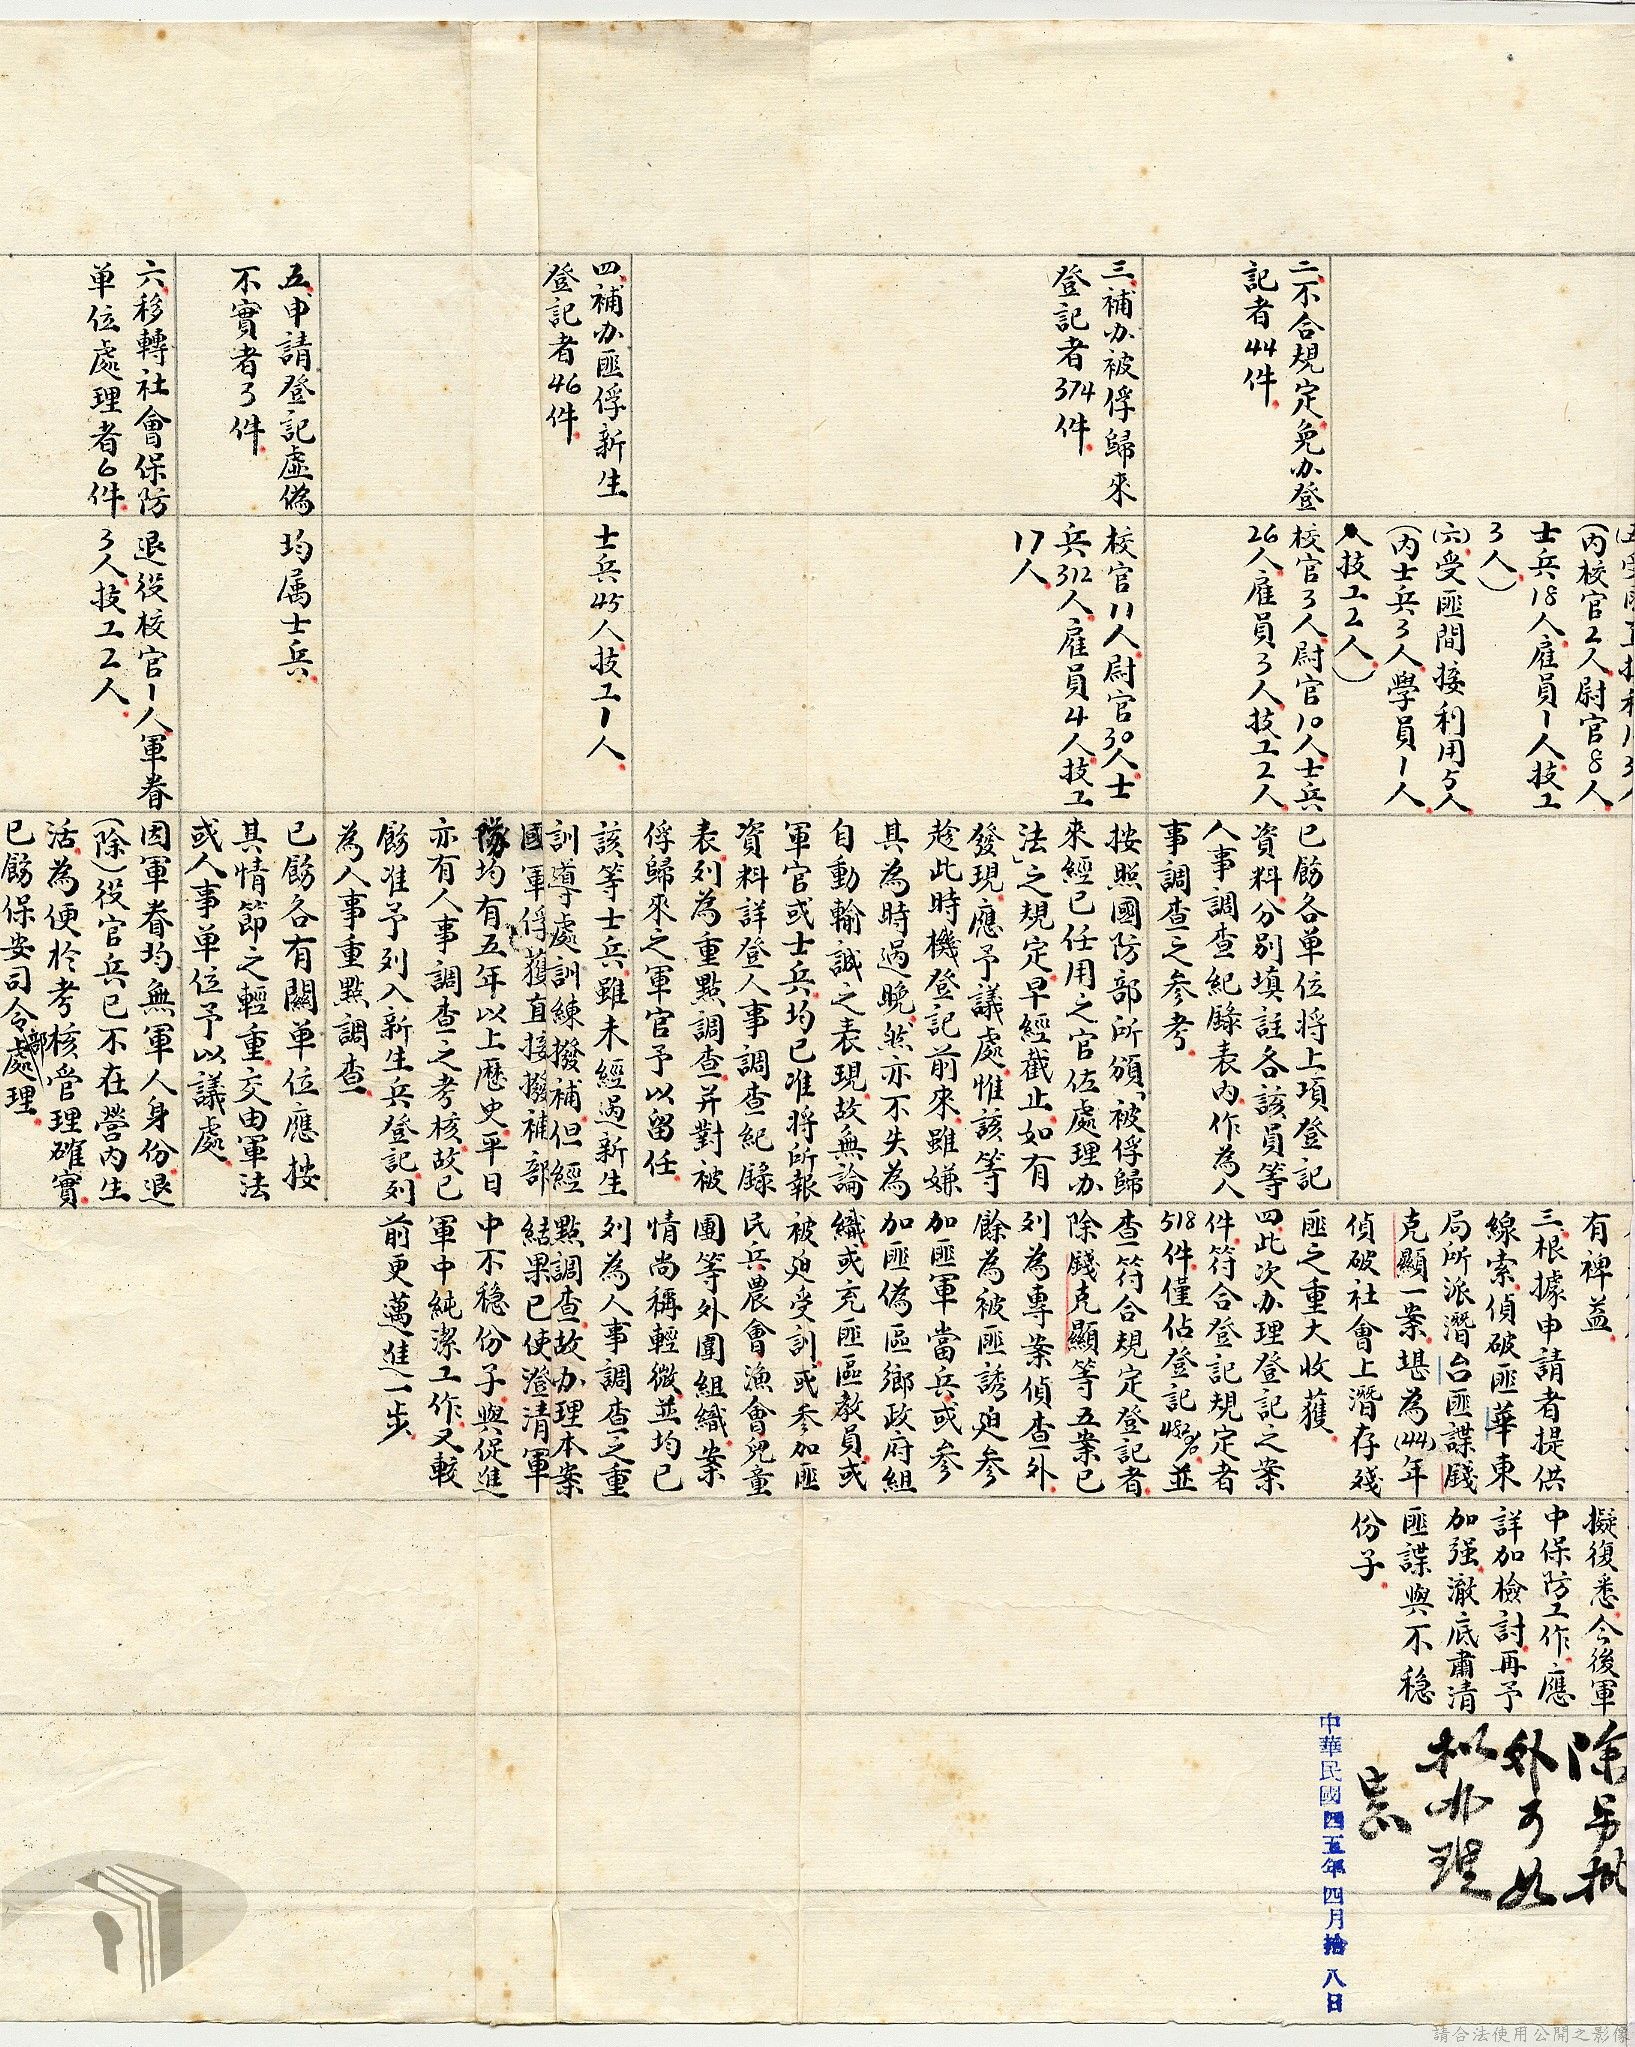 二、不合規定免办登
記者44件.
三、補办被俘歸來
登記者374件.
四、補办匪俘新生
登記者46件.
五、申請登記虛偽
不實者3件.
六、移轉社會保防
單位處理者6件.
(內校官2人尉官8人
士兵18人雇員1人技工
3人)
(六)受匪間接利用5人
(內士兵3人學員1人
技工2人)
校官3人尉官10人士兵
26人雇員3人技工2人
校官11人尉官30人士
兵312人雇員4人技工
17人.
士兵45人技工1人
均属士兵.
退役校官1人軍眷
3人技工2人.
已飭各单位将上項登記
資料分別填註各該員等
人事調查紀錄表內作為人
事調查之参考.
按照國防部所頒「被俘歸
來經已任用之官佐處理办
法」之規定早經截止如有
發現應予議處惟該等
趁此時機登記前來雖嫌
其為時過晚然亦不失為
自動輸誠之表現故無論
軍官或士兵均已准將所報
資料詳登人事調查紀錄
表列為重點調查并對被
俘歸來之軍官予以留任
該等士兵雖未經過新生
訓導處訓練撥補但經
國軍俘獲直接撥補部
隊均有五年以上歷史平日
亦有人事調查之考核故已
飭准予列入新生兵登記列
為人事重點調查
已飭各有關单位應按
其情節之輕重交由軍法
或人事单位予以議處
因軍眷均無軍人身份退
(除)役官兵已不在營內生
活為便於考核管理確實
已飭保安司令部處理.
有裨益
三、根據申請者提供
線索偵破匪華東
局所派潛台匪諜錢
克顯一案堪為(44)年
偵破社會上潛存殘
匪之重大收獲
四、此次办理登記之案
件符合登記規定者
518件僅佔登記 並
查符合規定登記者
除錢克顯等五案已
列為專案偵查外
餘為被匪誘迫参
加匪軍當兵或参
加匪偽區鄉政府組
織或充匪區教員或
被迫受訓或参加匪
民兵農會漁會兒童
團等外圍組織案
情尚稱輕微並均已
列為人事調查之重
點調查故办理本案
結果已使澄清軍
中不稳份子與促進
軍中純潔工作又較
前更邁進一步
擬復悉今後軍
中保防工作應
詳加檢討再予
加强澈底肅清
匪諜與不穏
份子
除另批
外可如
擬办理
中華民國四五年四月拾八日
請合法使用公開之影像